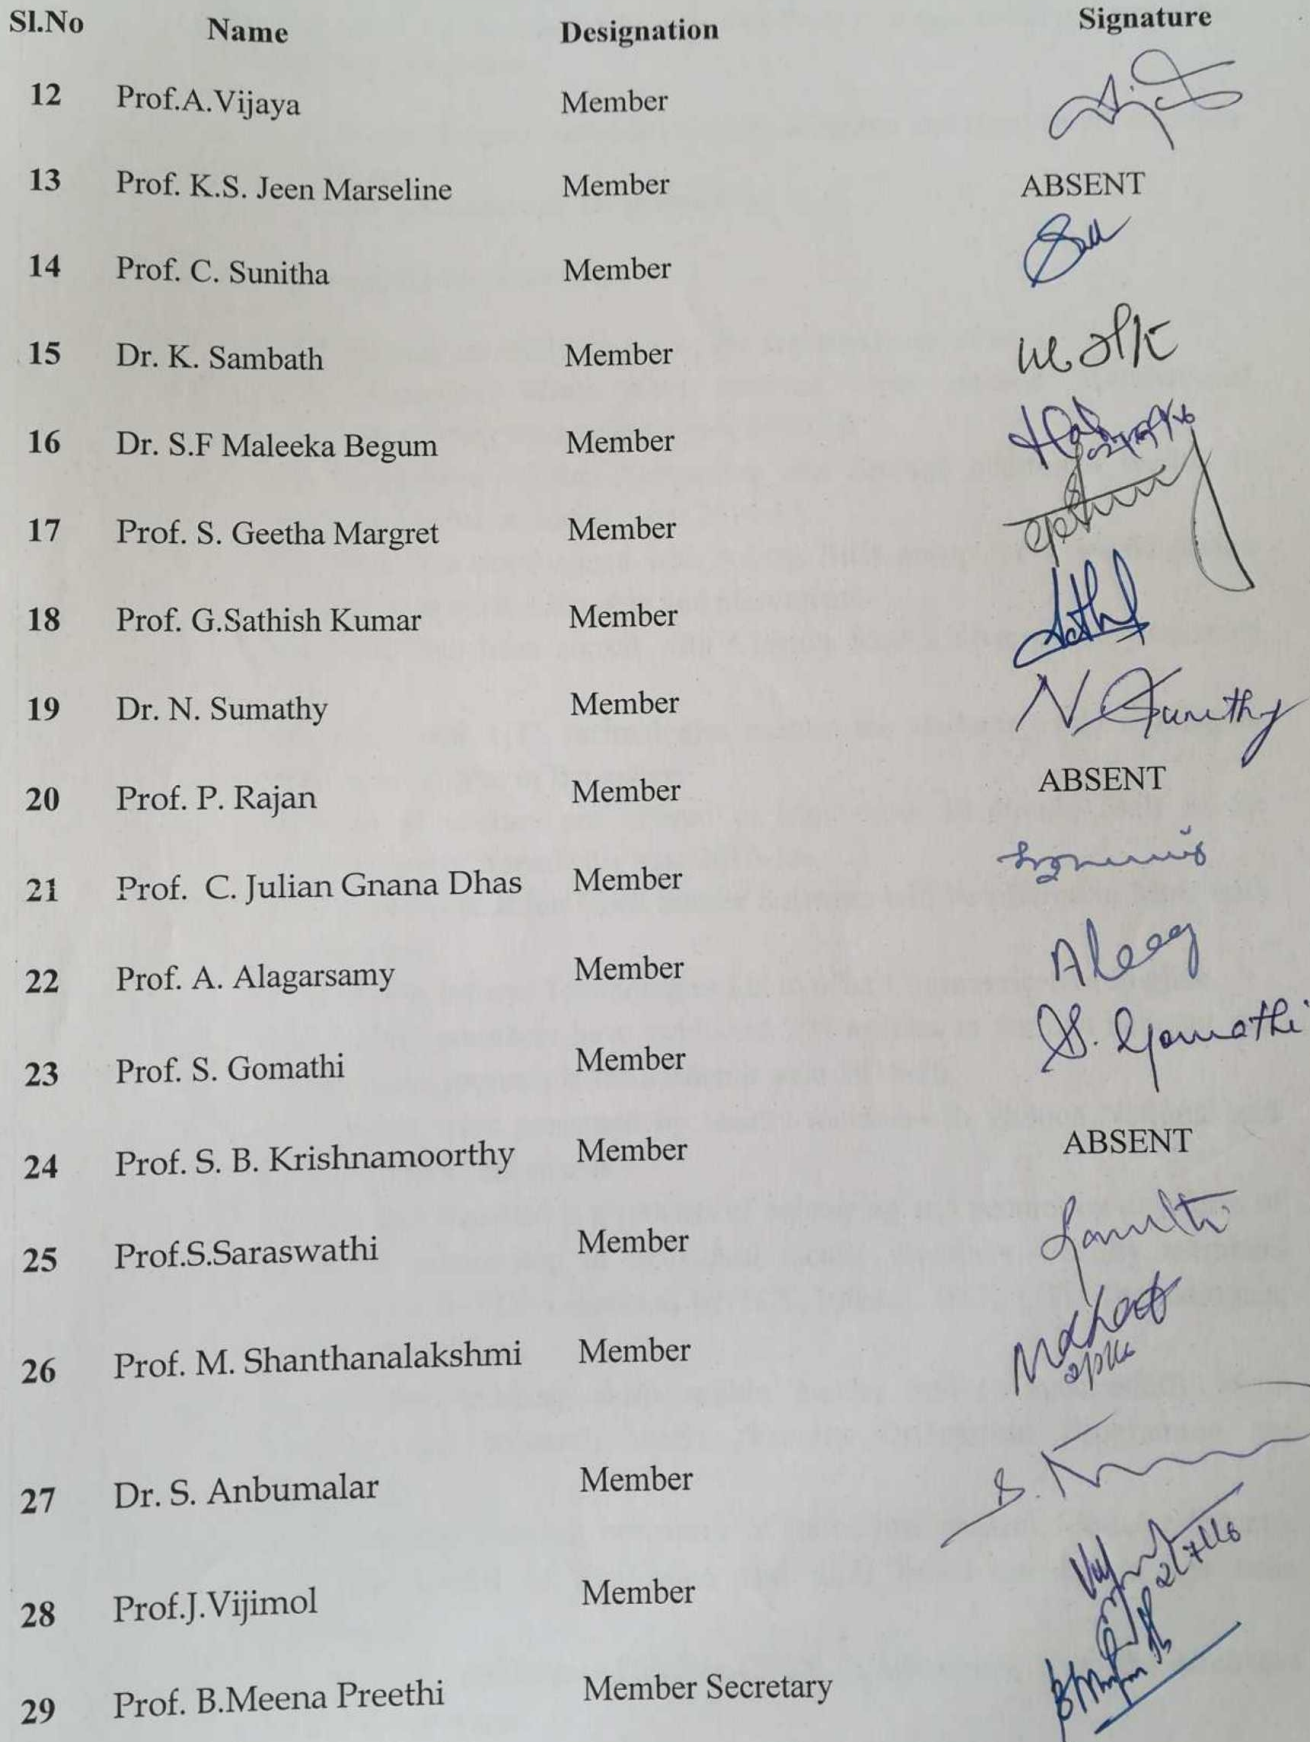 Sl.No Name Designation Signature
12 Prof.A.Vijaya Member
13 Prof. K.S. Jeen Marseline Member ABSENT
14 Prof. C. Sunitha Member
15 Dr. K. Sambath Member
16 Dr. S.F Maleeka Begum Member
17 Prof. S. Geetha Margret Member
18 Prof. G.Sathish Kumar Member
19 Dr. N. Sumathy Member N Sumathy
20 Prof. P. Rajan Member ABSENT
21 Prof. C. Julian Gnana Dhas Member
22 Prof. A. Alagarsamy Member
23 Prof. S. Gomathi Member S. Gomathi
24 Prof. S. B. Krishnamoorthy Member ABSENT
25 Prof.S.Saraswathi Member
26 Prof. M. Shanthanalakshmi Member
27 Dr. S. Anbumalar Member
28 Prof.J.Vijimol Member
29 Prof. B.Meena Preethi Member Secretary